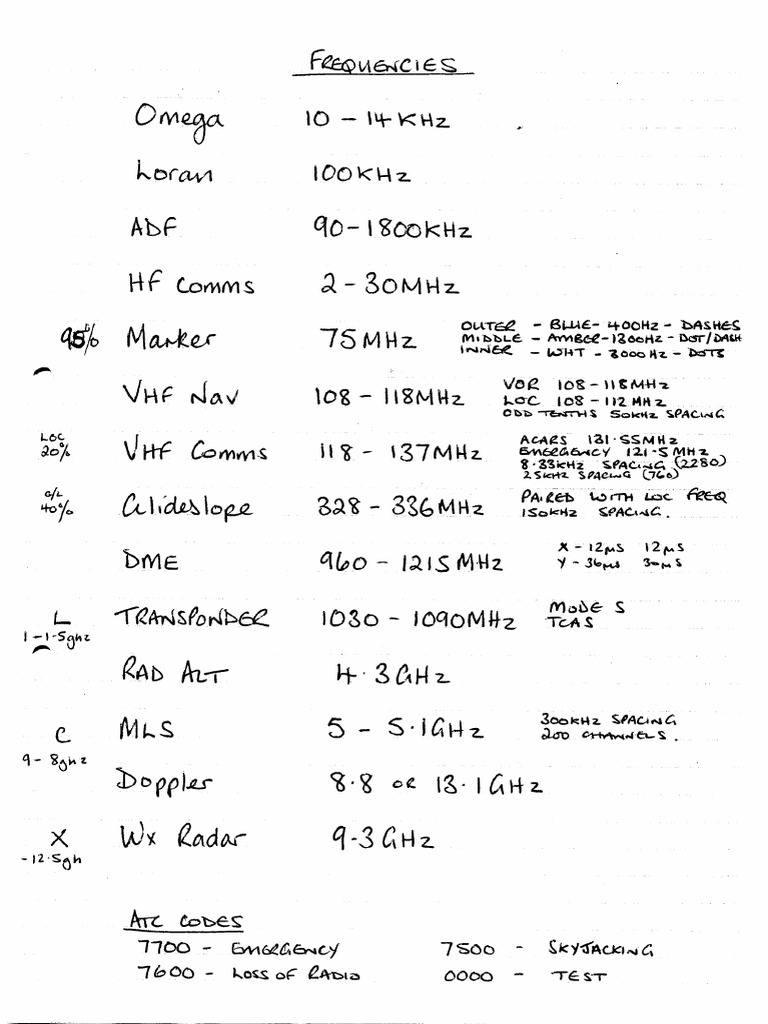 FREQUENCIES
Omega 10 - 14 KHz
Loran 100KHz
ADF 90-1800KHz
HF Comms 2 - 30MHz
95% Marker 75MHz
OUTER - BLUE - 400Hz - DASHES
MIDDLE - AMBER - 1300Hz - DOT/DASH
INNER - WHT - 3000Hz - DOTS
VHF Nav 108 - 118MHz
VOR 108 - 118MHz
LOC 108 - 112 MHz
ODD TENTHS 50KHz SPACING
LOC 20% VHF Comms 118 - 137MHz
ACARS 131.55MHz
EMERGENCY 121.5MHz
8.33KHz SPACING (2280)
25KHz SPACING (760)
G/L 40% Glideslope 328 - 336MHz
PAIRED WITH LOC FREQ
150KHz SPACING.
DME 960 - 1215MHz
X - 12µS 12µS
Y - 36µS 30µS
L 1-1.5ghz TRANSPONDER 1030 - 1090MHz
MODE S
TCAS
RAD ALT 4.3GHz
C MLS 5 - 5.1GHz
300KHz SPACING
200 CHANNELS.
9 - 8ghz
Doppler 8.8 OR 13.1GHz
X Wx Radar 9.3GHz
-12.5gh
ATC CODES
7700 - EMERGENCY 7500 - SKYJACKING
7600 - LOSS OF RADIO 0000 - TEST